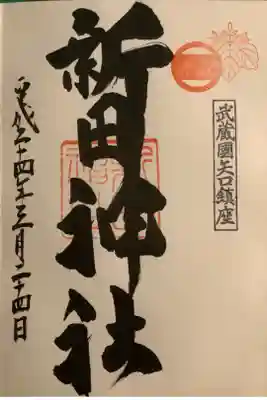 武蔵國矢口鎮座
新田神社
平成二十四年三月二十四日